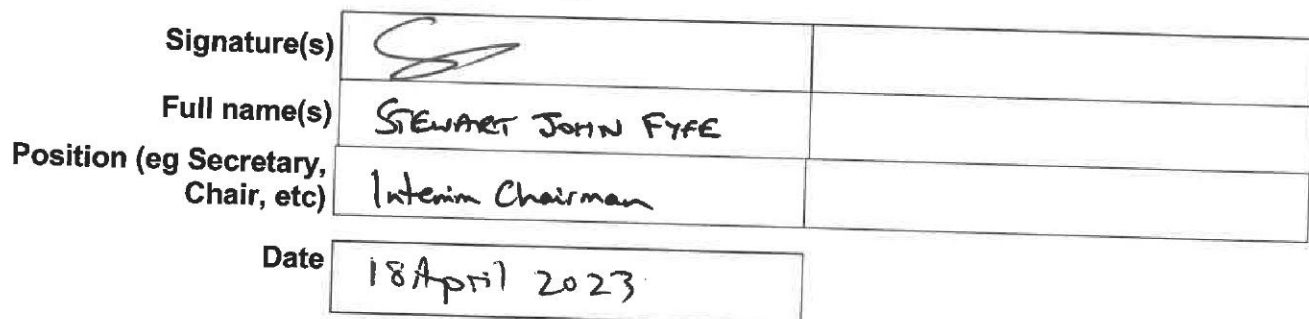 Signature(s)
Full name(s) STEWART JOHN FYFE
Position (eg Secretary,
Chair, etc) Interim Chairman
Date 18 April 2023